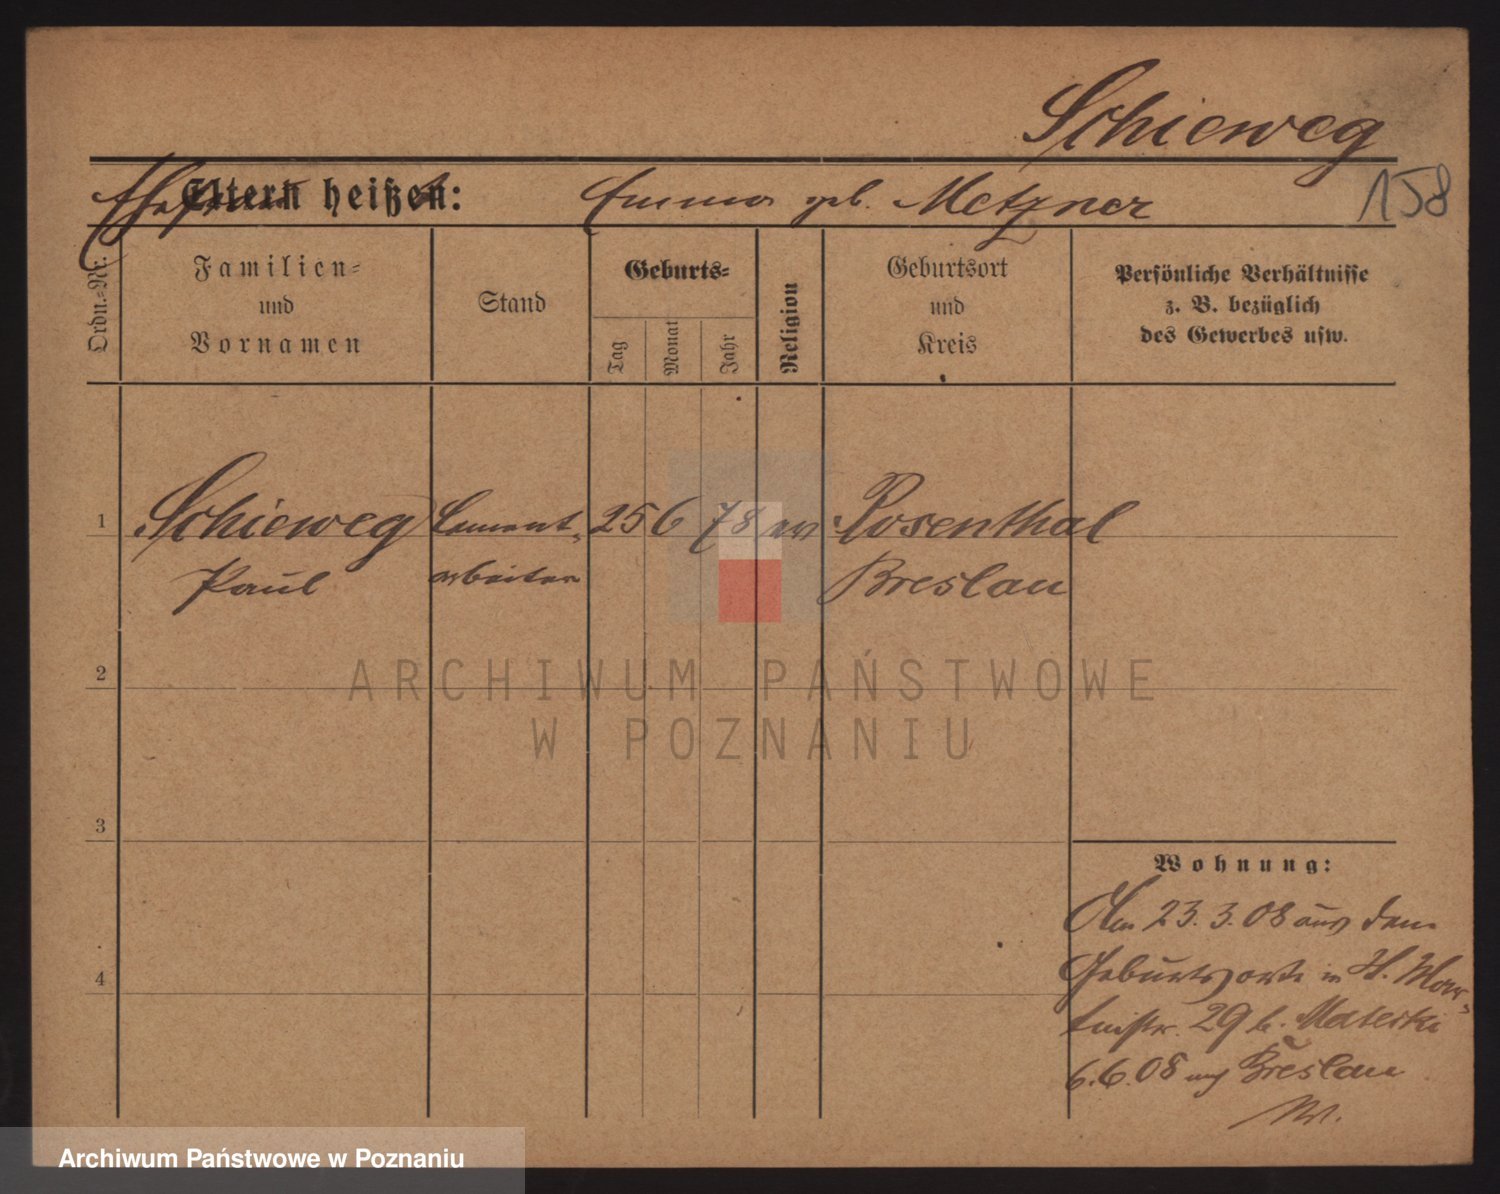 Schieweg
158
Eltern heißen: Emma geb. Metzner
Ehefrau
Ordn.-Nr.
Familien-
und
Vornamen
Stand
Geburts-
Tag
Monat
Jahr
Religion
Geburtsort
und
Kreis
Persönliche Verhältnisse
z. B. bezüglich
des Gewerbes usw.
1 Schieweg Cement- 25 6 78 ev Rosenthal
Paul arbeiter Breslau
2
3
4
Wohnung:
Am 23.3.08 aus dem
Geburtsorte in St. Mar-
tinstr. 29 b. Materski
6.6.08 nach Breslau
ARCHIWUM PAŃSTWOWE
W POZNANIU
Archiwum Państwowe w Poznaniu